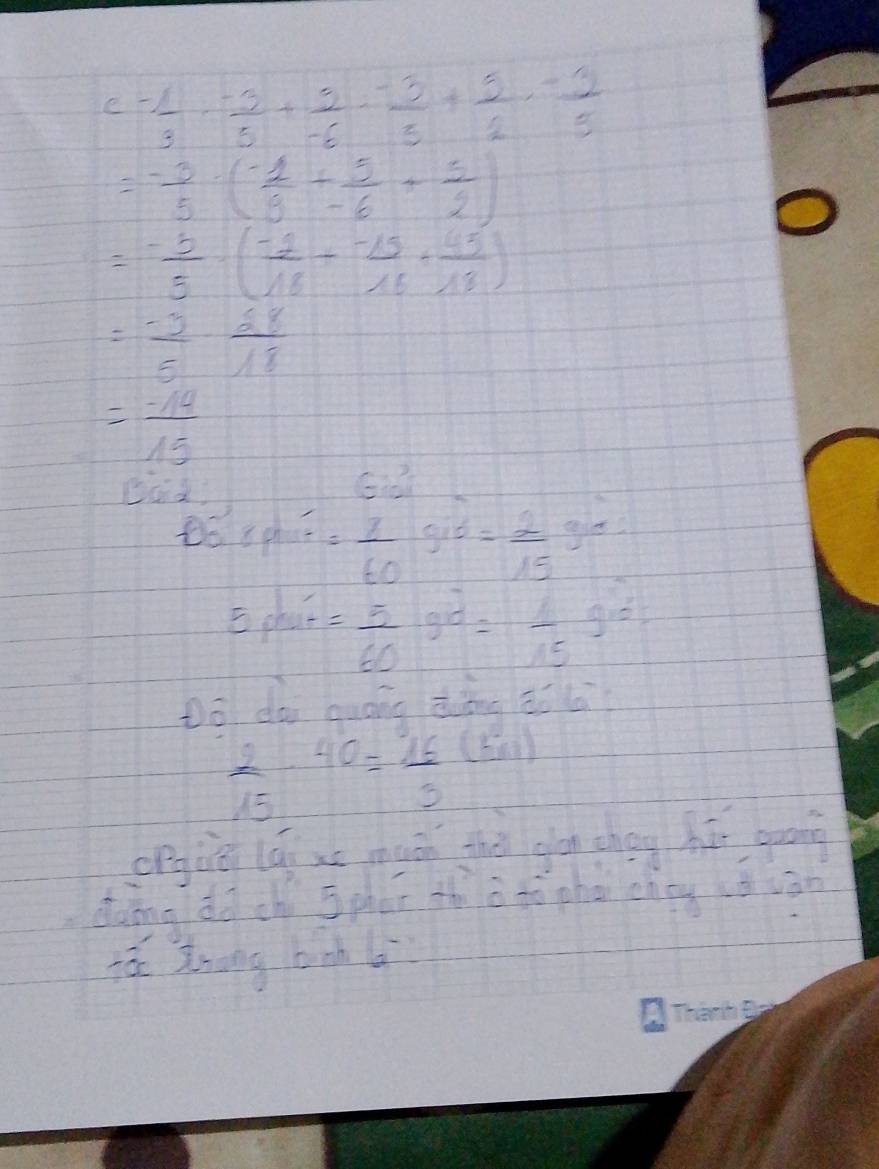 c -1/9 . -3/5 + 5/-6 . -3/5 + 5/2 . -3/5
= -3/5 . (-1/9 + 5/-6 + 5/2)
= -3/5 . (-2/18 + -15/18 + 45/18)
= -3/5 . 28/18
= -14/15
Bài 2: Giải
Đổi 8 phút = 8/60 giờ = 2/15 giờ
5 phút = 5/60 giờ = 1/15 giờ
Độ dài quãng đường đó là:
2/15 . 40 = 16/3 (km)
Người lái xe muốn thời gian chạy hết quãng
đường đó chỉ 5 phút thì ô tô phải chạy với vận
tốc trung bình là:
Thành Đạt